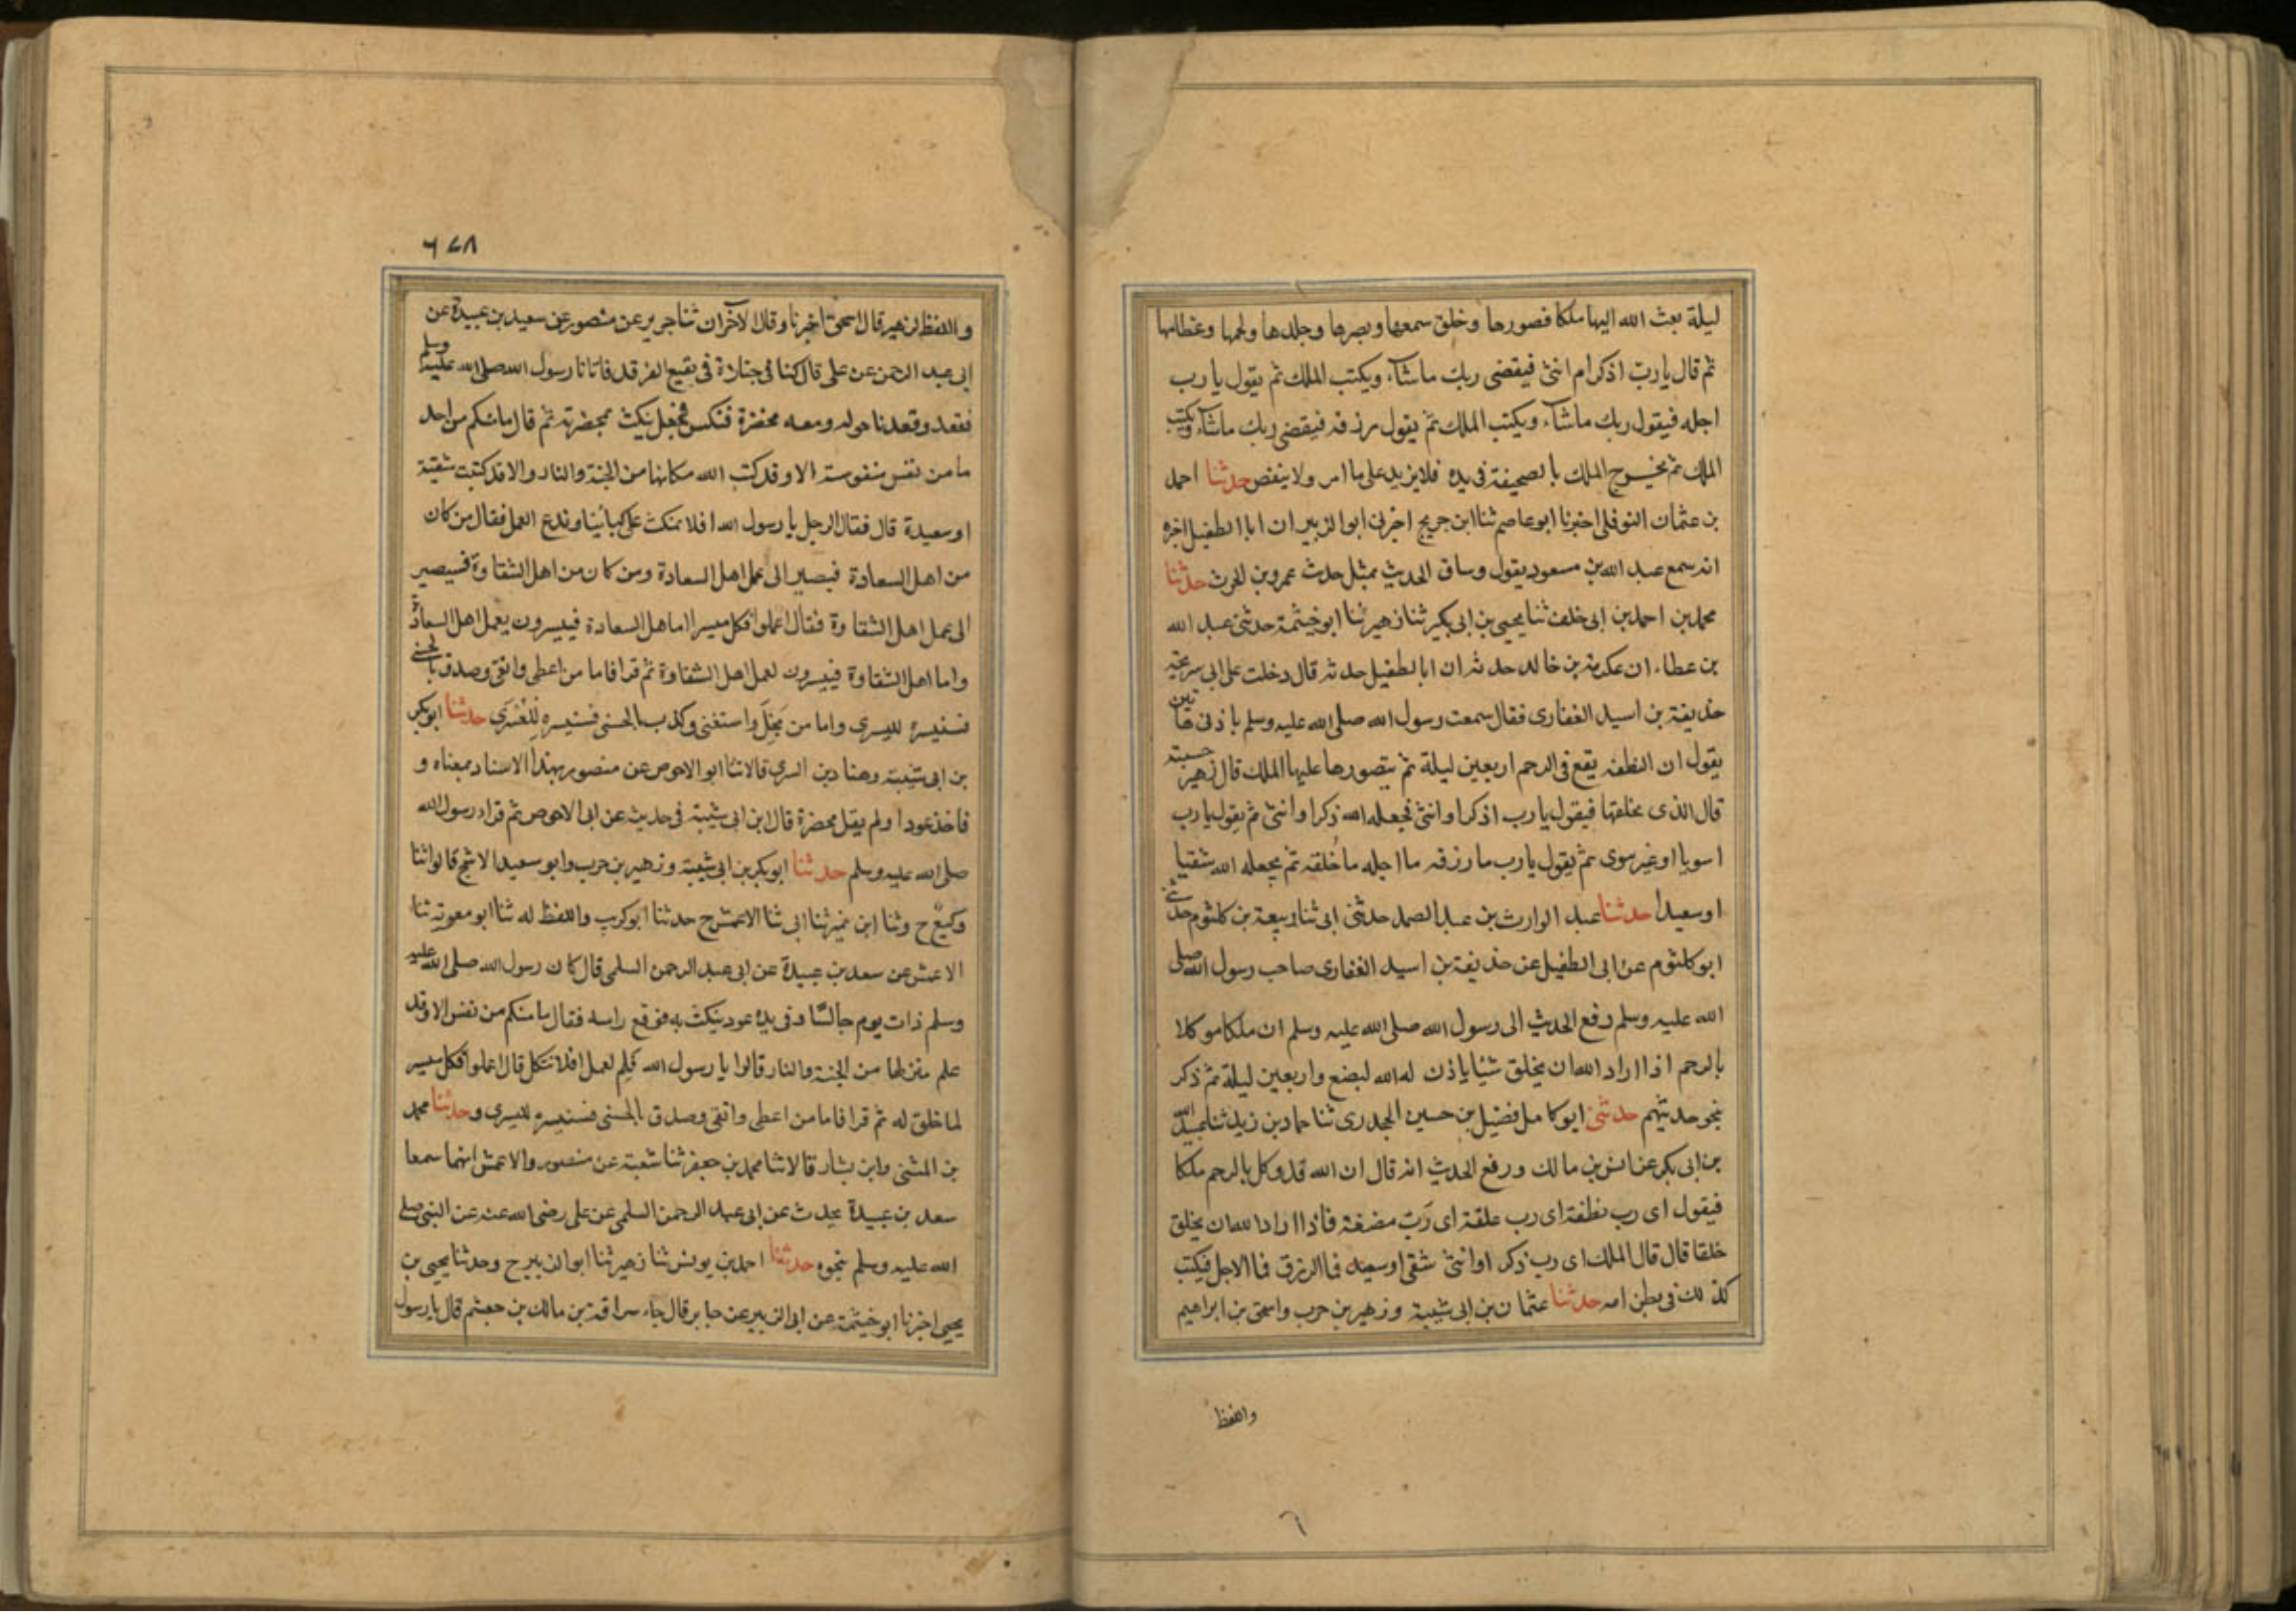 ليلة بعث الله اليها ملكا فصورها وخلق سمعها وبصرها وجلدها ولحمها وعظامها
ثم قال يا رب اذكر ام انثى فيقضى ربك ماشاء ويكتب الملك ثم يقول يا رب
اجله فيقول ربك ماشاء ويكتب الملك ثم يقول رزقه فيقضى ربك ماشاء ويكتب
الملك ثم يخرج الملك بالصحيفة فى يده فلا يزيد على ما امر ولا ينقص حدثنا احمد
بن عثمان النوفلى اخبرنا ابو عاصم ثنا ابن جريج اخبرنى ابو الزبير ان ابا الطفيل اخبره
انه سمع عبد الله بن مسعود يقول وساق الحديث بمثل حدث عمرو بن الحرث حدثنا
محمد بن احمد بن ابى خلف ثنا يحيى بن ابى بكير ثنا زهير ثنا ابو خيثمة حدثنى عبد الله
بن عطاء ان عكرمة بن خالد حدثه ان ابا الطفيل حدثه قال دخلت على ابى سريحة
حذيفة بن اسيد الغفارى فقال سمعت رسول الله صلى الله عليه وسلم باذنى هاتين
يقول ان النطفة يقع فى الرحم اربعين ليلة ثم يتصورها عليها الملك قال زهير حسبته
قال الذى يخلقها فيقول يا رب اذكر او انثى فيجعله الله ذكرا وانثى ثم يقول يا رب
اسويا او غير سوى ثم يقول يا رب ما رزقه ما اجله ما خلقه ثم يجعله الله شقيا
او سعيدا حدثنا عبد الوارث بن عبد الصمد حدثنى ابى ثنا ربيعة بن كلثوم حدثنى
ابو كلثوم عن ابى الطفيل عن حذيفة بن اسيد الغفارى صاحب رسول الله صلى
الله عليه وسلم رفع الحديث الى رسول الله صلى الله عليه وسلم ان ملكا موكلا
بالرحم اذا اراد الله ان يخلق شيئا ياذن له الله لبضع واربعين ليلة ثم ذكر
نحو حديثهم حدثنى ابو كامل فضيل بن حسين الجحدرى ثنا حماد بن زيد ثنا عبيد الله
بن ابى بكر عن انس بن مالك ورفع الحديث انه قال ان الله قد وكل بالرحم ملكا
فيقول اى رب نطفة اى رب علقة اى رَب مضغة فاذا اراد الله ان يخلق
خلقا قال قال الملك اى رب ذكر او انثى شقى او سعيد فما الرزق فما الاجل فيكتب
كذلك فى بطن امه حدثنا عثمان بن ابى شيبة وزهير بن حرب واسحق بن ابراهيم
واللفظ
٦٧٨
واللفظ لزهير قال اسحق اخبرنا وقال الآخران ثنا جرير عن منصور عن سعيد بن عبيدة عن
ابى عبد الرحمن عن على قال كنا فى جنازة فى بقيع الغرقد فاتانا رسول الله صلى الله عليه وسلم
فقعد وقعدنا حوله ومعه مخضرة فنكس فجعل ينكث بمخضرته ثم قال ما منكم من احد
ما من نفس منفوسة الا وقد كتب الله مكانها من الجنة والنار والا قد كتبت شقية
او سعيدة قال فقال الرجل يا رسول الله افلا نمكث على كتابنا وندع العمل فقال من كان
من اهل السعادة فيصير الى عمل اهل السعادة ومن كان من اهل الشقاوة فسيصير
الى عمل اهل الشقاوة فقال اعملوا فكل ميسر اما اهل السعادة فييسرون بعمل اهل السعادة
واما اهل الشقاوة فييسرون لعمل اهل الشقاوة ثم قرا فاما من اعطى واتقى وصدق بالحسنى
فسنيسره لليسرى واما من بَخِلَ واستغنى وكذب بالحسنى فسنيسره لِلْعُسْرَى حدثنا ابو بكر
بن ابى شيبة وهناد بن السرى قالا ثنا ابو الاحوص عن منصور بهذا الاسناد بمعناه و
فاخذ عودا ولم يقل مخضرة قال ابن ابى شيبة فى حديث عن ابى الاحوص ثم قراء رسول الله
صلى الله عليه وسلم حدثنا ابو بكر بن ابى شيبة وزهير بن حرب وابو سعيد الاشج قالوا ثنا
وكيع ح وثنا ابن نمير ثنا ابى ثنا الاعمش ح حدثنا ابو كريب واللفظ له ثنا ابو معوية ثنا
الاعمش عن سعد بن عبيدة عن ابى عبد الرحمن السلمى قال كان رسول الله صلى الله عليه
وسلم ذات يوم جالسًا وفى يده عود ينكث به فرفع راسه فقال ما منكم من نفس الا وقد
علم منزلها من الجنة والنار قالوا يا رسول الله فَلِم نعمل افلا نتكل قال اعملوا فكل ميسر
لما خلق له ثم قرا فاما من اعطى واتقى وصدق بالحسنى فسنيسره لليسرى وحدثنا محمد
بن المثنى وابن بشار قالا ثنا محمد بن جعفر ثنا شعبة عن منصور والاعمش انهما سمعا
سعد بن عبيدة يحدث عن ابى عبد الرحمن السلمى عن على رضى الله عنه عن النبى صلى
الله عليه وسلم بنحوه حدثنا احمد بن يونس ثنا زهير ثنا ابو الزبير ح وحدثنا يحيى بن
يحيى اخبرنا ابو خيثمة عن ابى الزبير عن جابر قال جاء سراقة بن مالك بن جعشم قال يا رسول